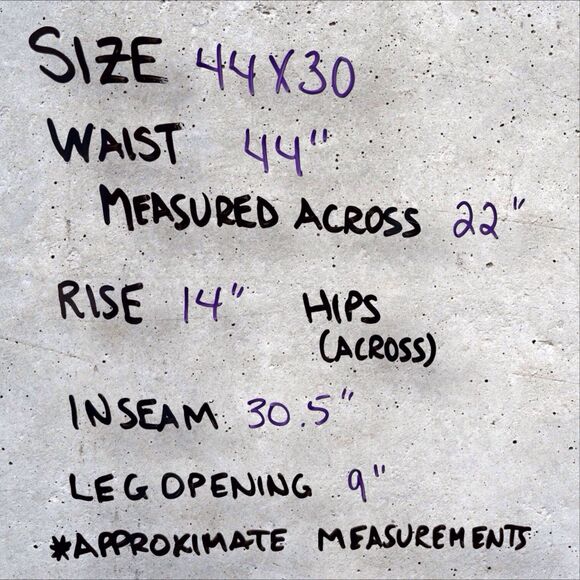 SIZE 44X30
WAIST 44"
MEASURED ACROSS 22"
RISE 14" HIPS
(ACROSS)
INSEAM 30.5"
LEG OPENING 9"
*APPROXIMATE MEASUREMENTS